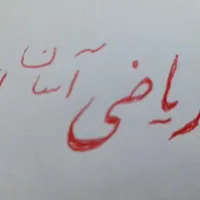 ریاضی آسان